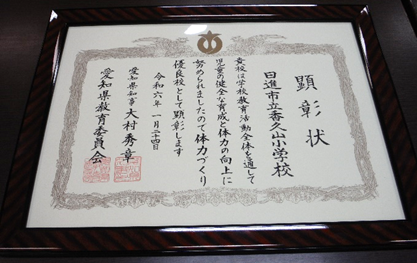 顕彰状
日進市立香久山小学校
貴校は学校教育活動全体を通して
児童の健全な育成と体力の向上に
努められましたので体力づくり
優良校として顕彰します
令和六年 一月二十四日
愛知県知事 大村秀章
愛知県教育委員会